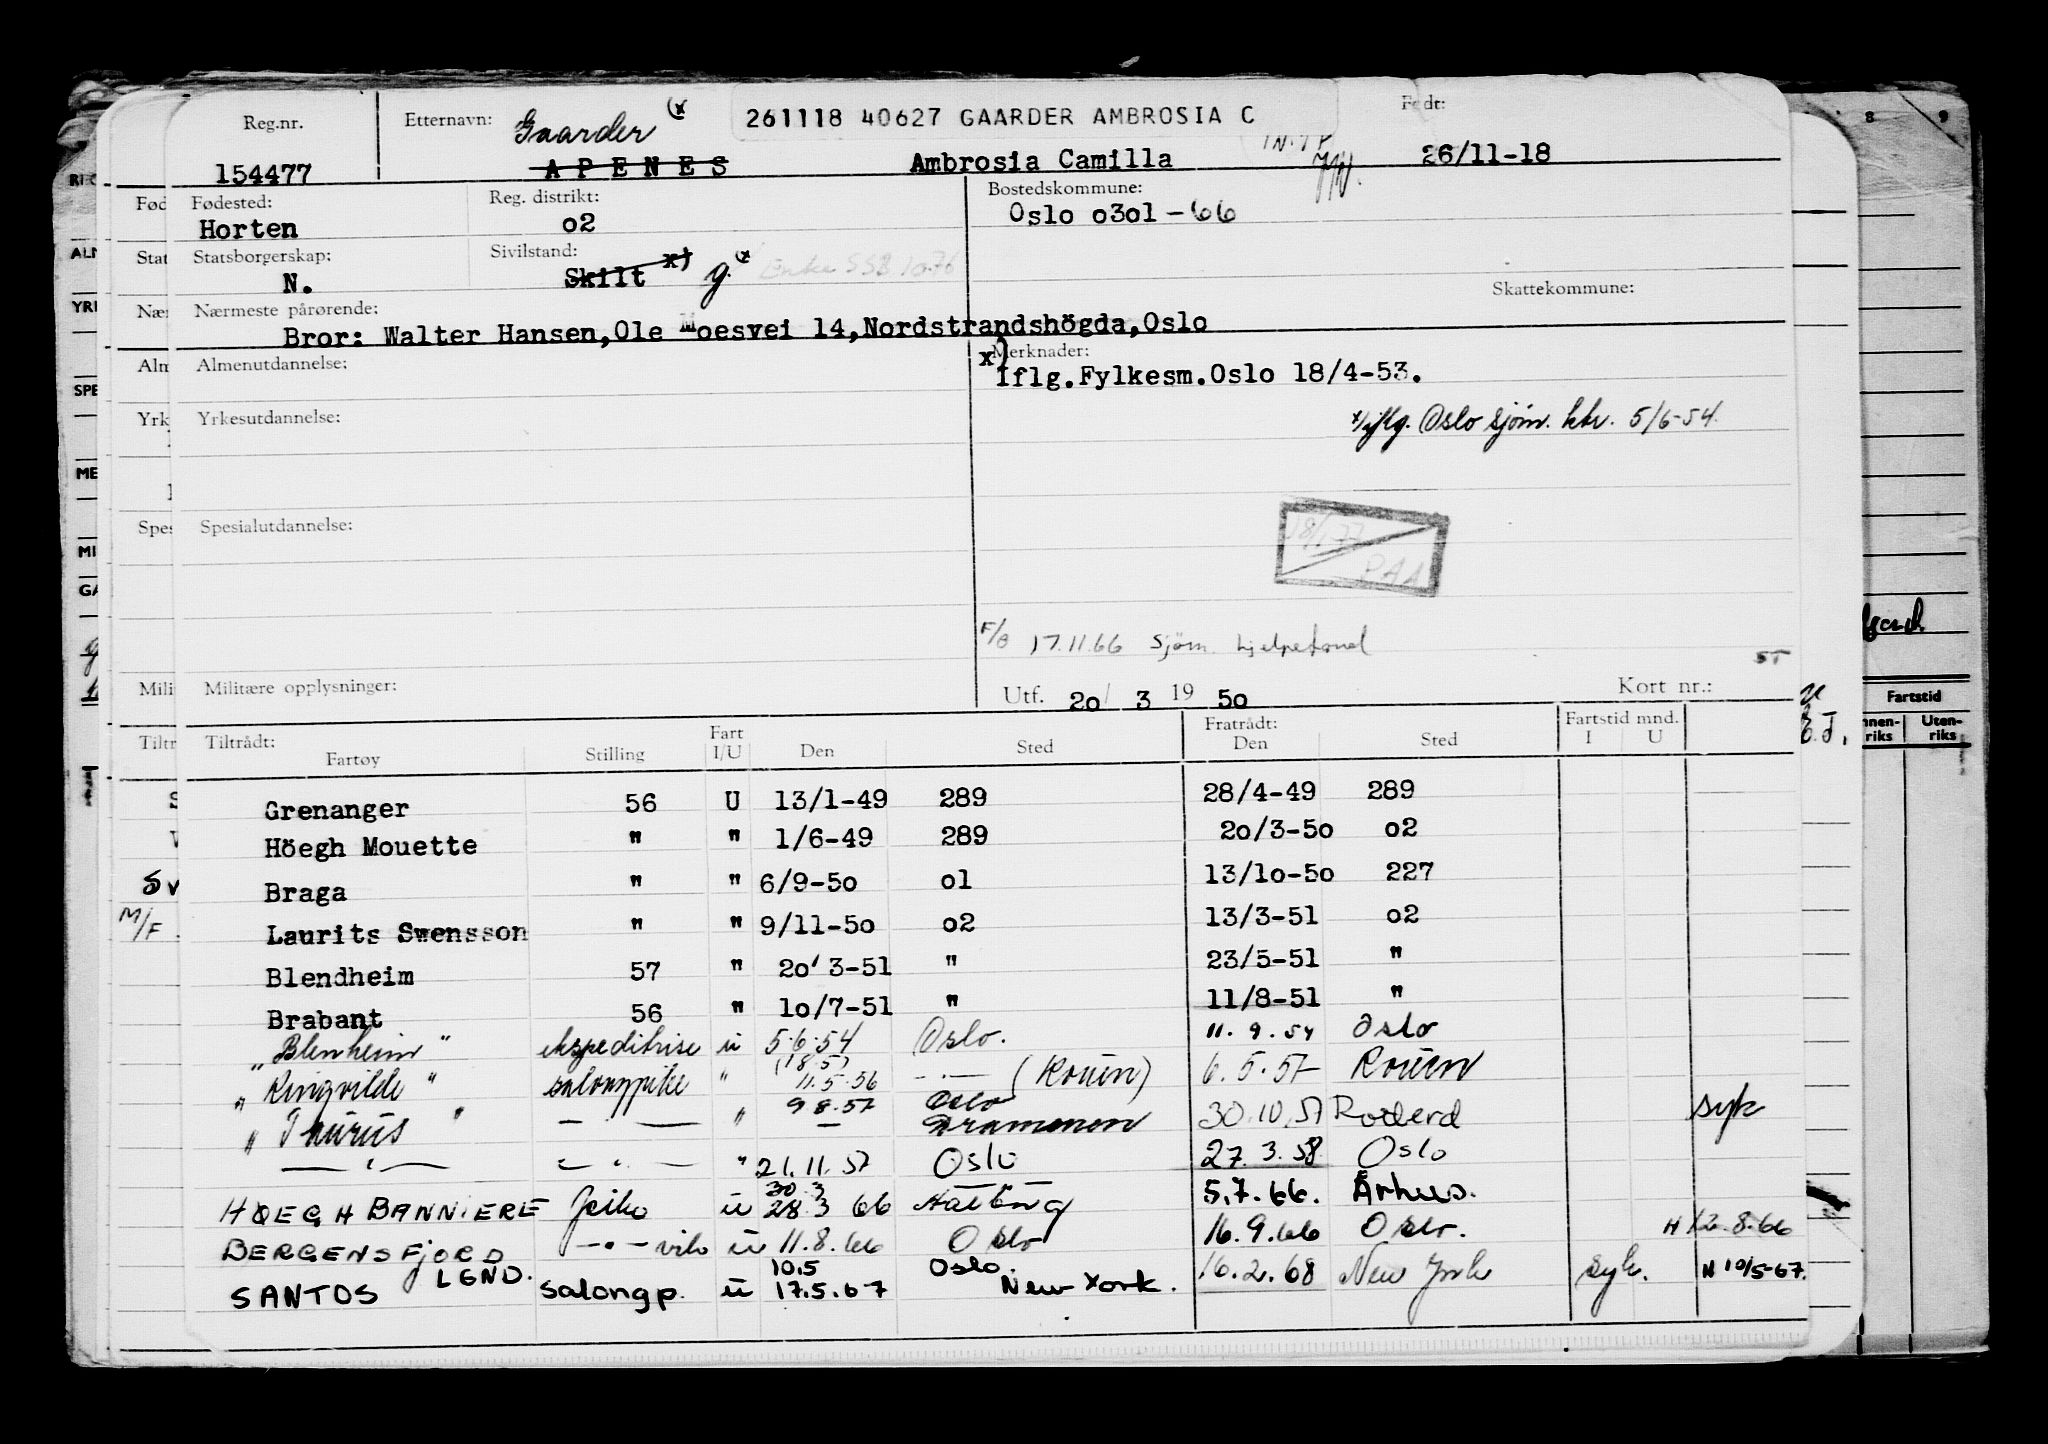 Reg.nr. Etternavn: Gaarder (x 261118 40627 GAARDER AMBROSIA C Født:
154477 APENES Ambrosia Camilla 26/11-18
Fødested: Reg. distrikt: Bostedskommune:
Horten o2 Oslo o3o1-66
Statsborgerskap: Sivilstand:
N. Skilt x) g. (x Enke SSB 10.76
Skattekommune:
Nærmeste pårørende:
Bror: Walter Hansen,Ole Moesvei 14,Nordstrandshögda,Oslo
Almenutdannelse: Merknader:
x) Iflg.Fylkesm.Oslo 18/4-53.
Yrkesutdannelse: x/ iflg. Oslo sjöm. ktr. 5/6-54.
Spesialutdannelse:
18/1-77
PAA
F/O 17.11.66 Sjöm. hjelpefond
ST
Militære opplysninger: Utf. 2o/ 3 19 5o Kort nr.:
Tiltrådt: Fratrådt: Fartstid mnd.
Fartøy Stilling Fart I/U Den Sted Den Sted I U
Grenanger 56 U 13/1-49 289 28/4-49 289
Höegh Mouette " " 1/6-49 289 2o/3-5o o2
Braga " " 6/9-5o o1 13/1o-5o 227
Laurits Swensson " " 9/11-5o o2 13/3-51 o2
Blendheim 57 " 2o/3-51 " 23/5-51 "
Brabant 56 " 1o/7-51 " 11/8-51 "
"Blenheim" ekspeditrise u 5.6.54 Oslo. 11.9.54 Oslo
"Ringvilde" salongpike " (18.5) 11.5.56 -.- (Rouen) 6.5.57 Rouen
"Taurus" -.- " 9.8.57 Oslo Drammen 30.10.57 syk
-"- -"- " 21.11.57 Oslo 27.3.58 Oslo
HØEGH BANNIERE Pike u 30.3 28.3 66 5.7.66. Århus.
BERGENSFJORD -"- u 11.8.66 Oslo 16.9.66 Oslo. H 12.8.66
SANTOS LGND. salongp. u 10.5 17.5.67 Oslo. New York. 16.2.68 New York syk. N 10/5-67.
Fartstid
Uten-
riks